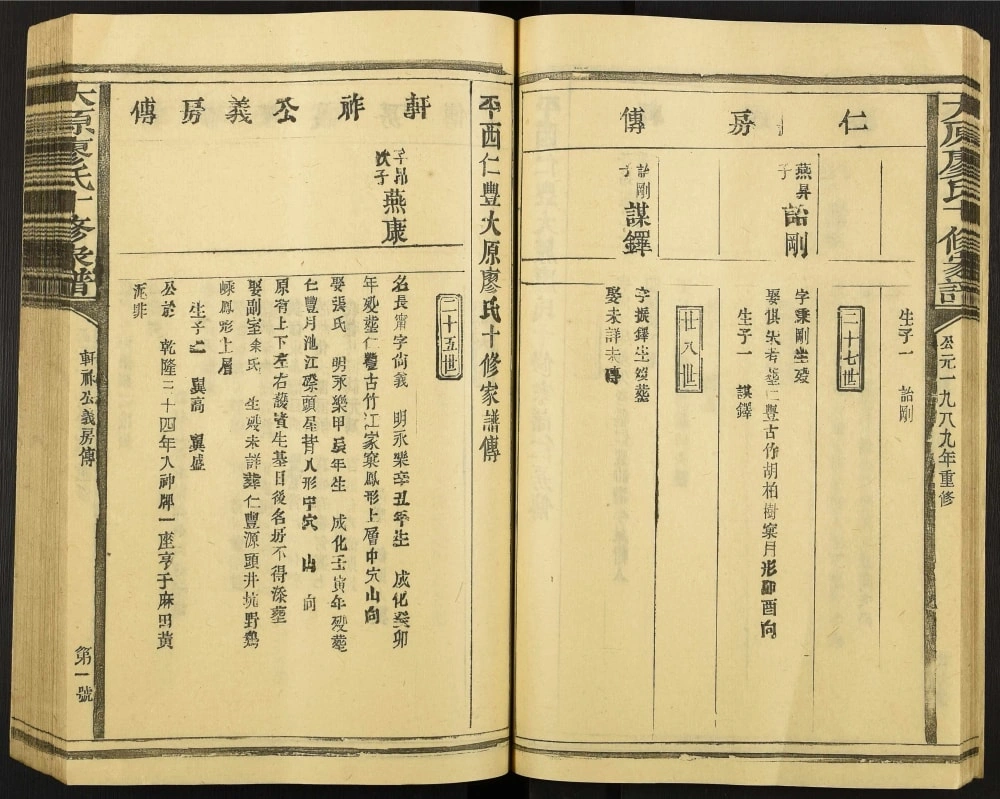 大原廖氏十修家譜
公元一九八九年重修
仁房傳
生子一 詒剛
二十七世
燕昇子 詒剛
字秉剛生歿
娶俱失考葬仁豐古竹胡柏樹窠月形卯酉向
生子一 謀鐸
廿八世
詒剛子 謀鐸
字振鐸生歿葬
娶未詳未傳
平西仁豐大原廖氏十修家譜傳
軒祚公義房傳
二十五世
字昂次子 燕康
名長甯字尚義 明永樂辛丑年生 成化癸卯
年歿葬仁豐古竹江家窠鳳形上層中穴山向
娶張氏 明永樂甲辰年生 成化壬寅年歿葬
仁豐月池江磜頭犀背人形中穴 山 向
原有上下左右護資生基日後名房不得添葬
娶副室余氏 生歿未詳葬仁豐源頭井坑野鷄
嵊鳳形上層
生子二 冀高 冀盛
公於 乾隆二十四年入神牌一座亨于麻田黃
泥排
大原廖氏十修家譜
軒祚公義房傳
第一號